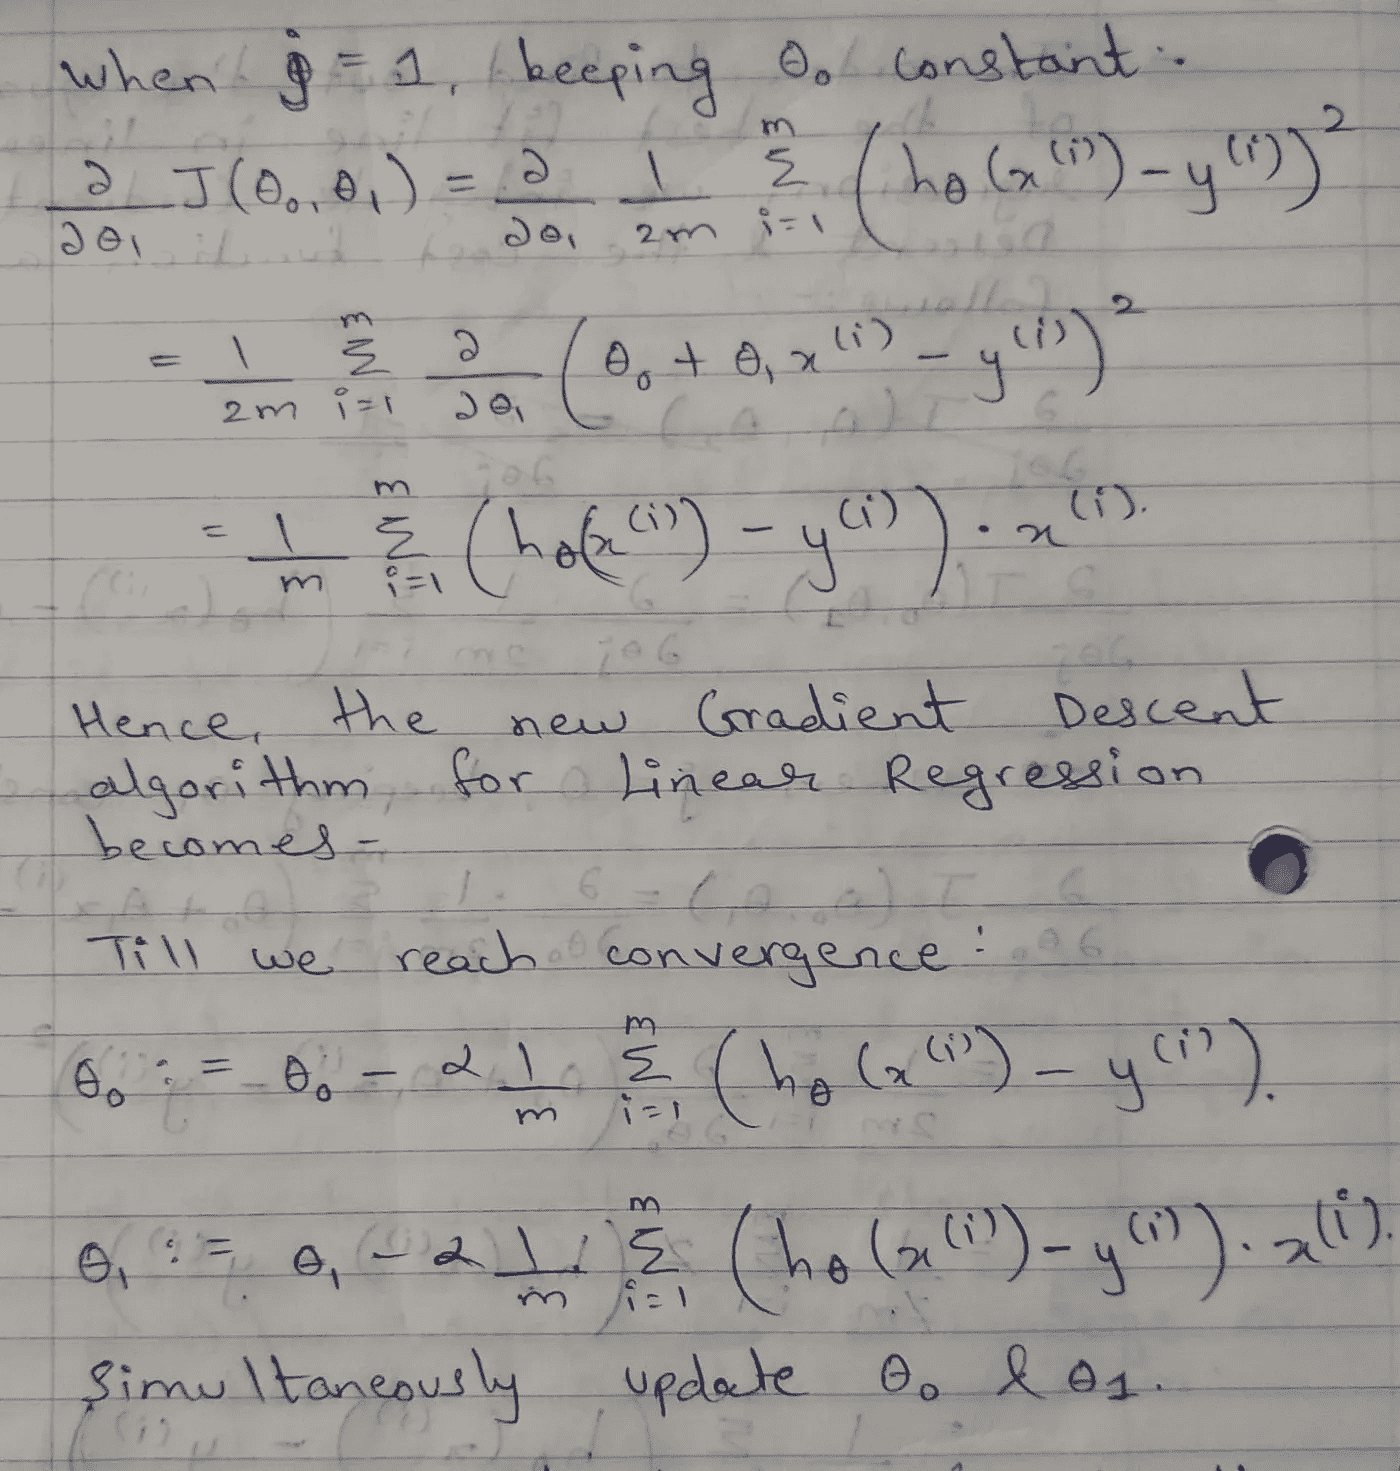 When j = 1, keeping θ₀ constant :-
∂/∂θ₁ J(θ₀, θ₁) = ∂/∂θ₁ 1/2m Σᵢ₌₁ᵐ (hθ(x⁽ⁱ⁾) - y⁽ⁱ⁾)²
= 1/2m Σᵢ₌₁ᵐ ∂/∂θ₁ (θ₀ + θ₁x⁽ⁱ⁾ - y⁽ⁱ⁾)²
= 1/m Σᵢ₌₁ᵐ (hθ(x⁽ⁱ⁾) - y⁽ⁱ⁾) . x⁽ⁱ⁾.
Hence, the new Gradient Descent
algorithm for Linear Regression
becomes -
Till we reach convergence :
θ₀ := θ₀ - α 1/m Σᵢ₌₁ᵐ (hθ(x⁽ⁱ⁾) - y⁽ⁱ⁾).
θ₁ := θ₁ - α 1/m Σᵢ₌₁ᵐ (hθ(x⁽ⁱ⁾) - y⁽ⁱ⁾) . x⁽ⁱ⁾.
Simultaneously update θ₀ & θ1.